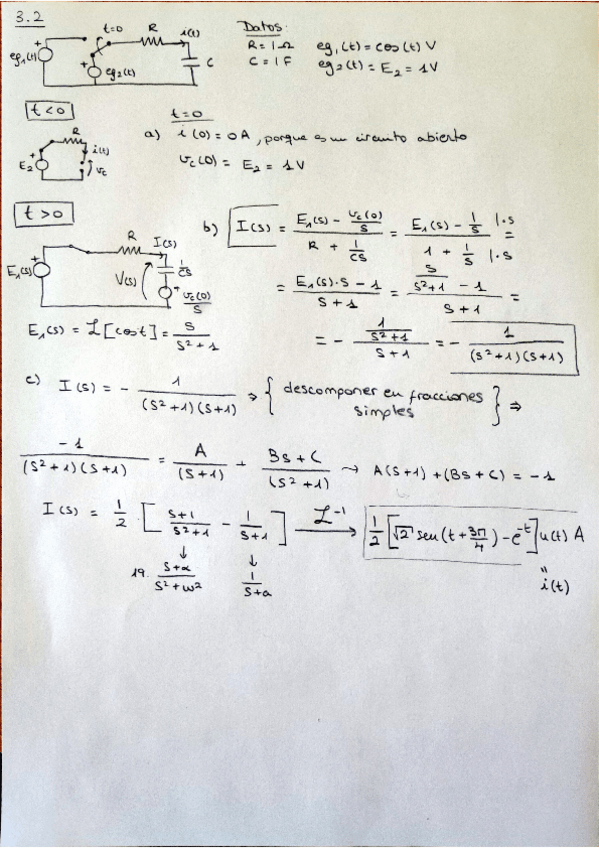 3.2
t=0 R i(t) C eg₁(t) eg₂(t) + +
Datos:
R = 1 Ω eg₁(t) = cos(t) V
C = 1 F eg₂(t) = E₂ = 1V
t<0
R i(t) E₂ + vc
t=0
a) i(0) = 0A, porque es un circuito abierto
vc(0) = E₂ = 1V
t>0
R I(s) E₁(s) + V(s) 1/Cs vc(0)/s +
E₁(s) = ℒ[cost] = s/(s²+1)
b) I(s) = (E₁(s) - vc(0)/s)/(R + 1/Cs) = (E₁(s) - 1/s)/(1 + 1/s) |·s |·s =
= (E₁(s)·s - 1)/(s+1) = (s/(s²+1) - 1)/(s+1) =
= - (1/(s²+1))/(s+1) = - 1/((s²+1)(s+1))
c) I(s) = - 1/((s²+1)(s+1)) ⇒ { descomponer en fracciones simples } ⇒
-1/((s²+1)(s+1)) = A/(s+1) + (Bs+C)/(s²+1) → A(s+1)+(Bs+C) = -1
I(s) = 1/2 [ (s+1)/(s²+1) - 1/(s+1) ] ℒ⁻¹ → 1/2 [√2 sen(t+3π/4) - e^-t] u(t) A
↓ ↓ "
19. (s+α)/(s²+ω²) 1/(s+a) i(t)